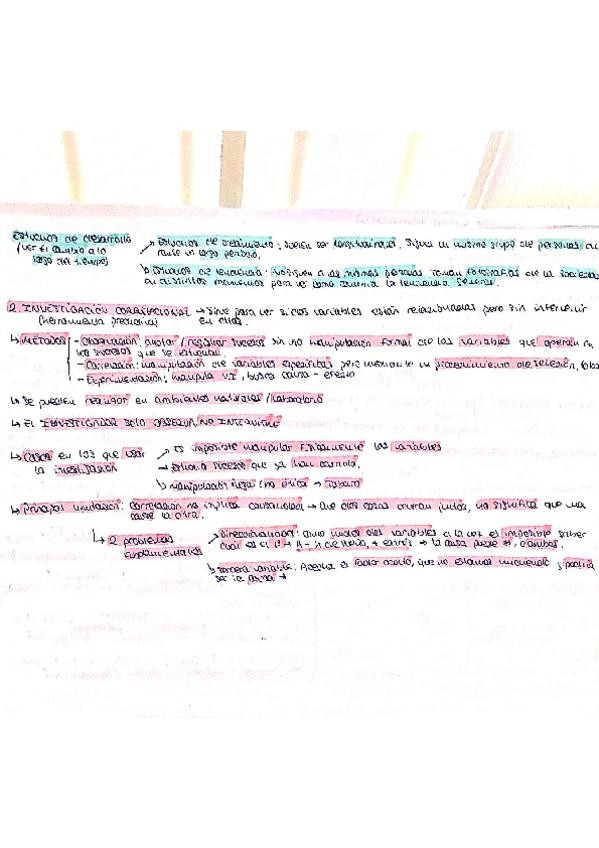 Estudios de desarrollo
(ver el cambio a lo
largo del tiempo)
→ Estudios de crecimiento: suelen ser longitudinales. Siguen un mismo grupo de personas du
rante un largo periodo.
↳ Estudios de tendencia: no siguen a las mismas personas. Toman fotografías de la sociedad
en distintos momentos para ver como la tendencia general.
2. INVESTIGACIÓN CORRELACIONAL → Sirve para ver si dos variables están relacionadas pero sin intervenir
(herramienta predictiva) en ellas.
↳ MÉTODOS - Observación: anotar / registrar sucesos sin manipulación formal de las variables que operan en
los sucesos que se estudian.
- Correlación: manipulación de variables específicas pero mediante un procedimiento de selección,
- Experimentación: manipula V.I, busca causa - efecto
↳ Se pueden realizar en ambientes naturales / laboratorio
↳ El INVESTIGADOR SOLO OBSERVA, NO INTERVIENE
↳ CASOS en los que usar
la investigación
→ Es imposible manipular físicamente las variables
→ Estudia sucesos que ya han ocurrido.
↳ manipulación ilegal / no ética → tabaco
↳ Principal limitación: Correlación no implica causalidad → Que dos cosas ocurran juntas, no significa que una
cause la otra.
↳ 2 problemas
fundamentales
→ Direccionalidad: Como mides dos variables a la vez es imposible saber
cuál es el 1º → + estrés → la causa puede ambas.
↳ Tercera variable: el factor oculto, que no estamos midiendo y podría
ser la causa →